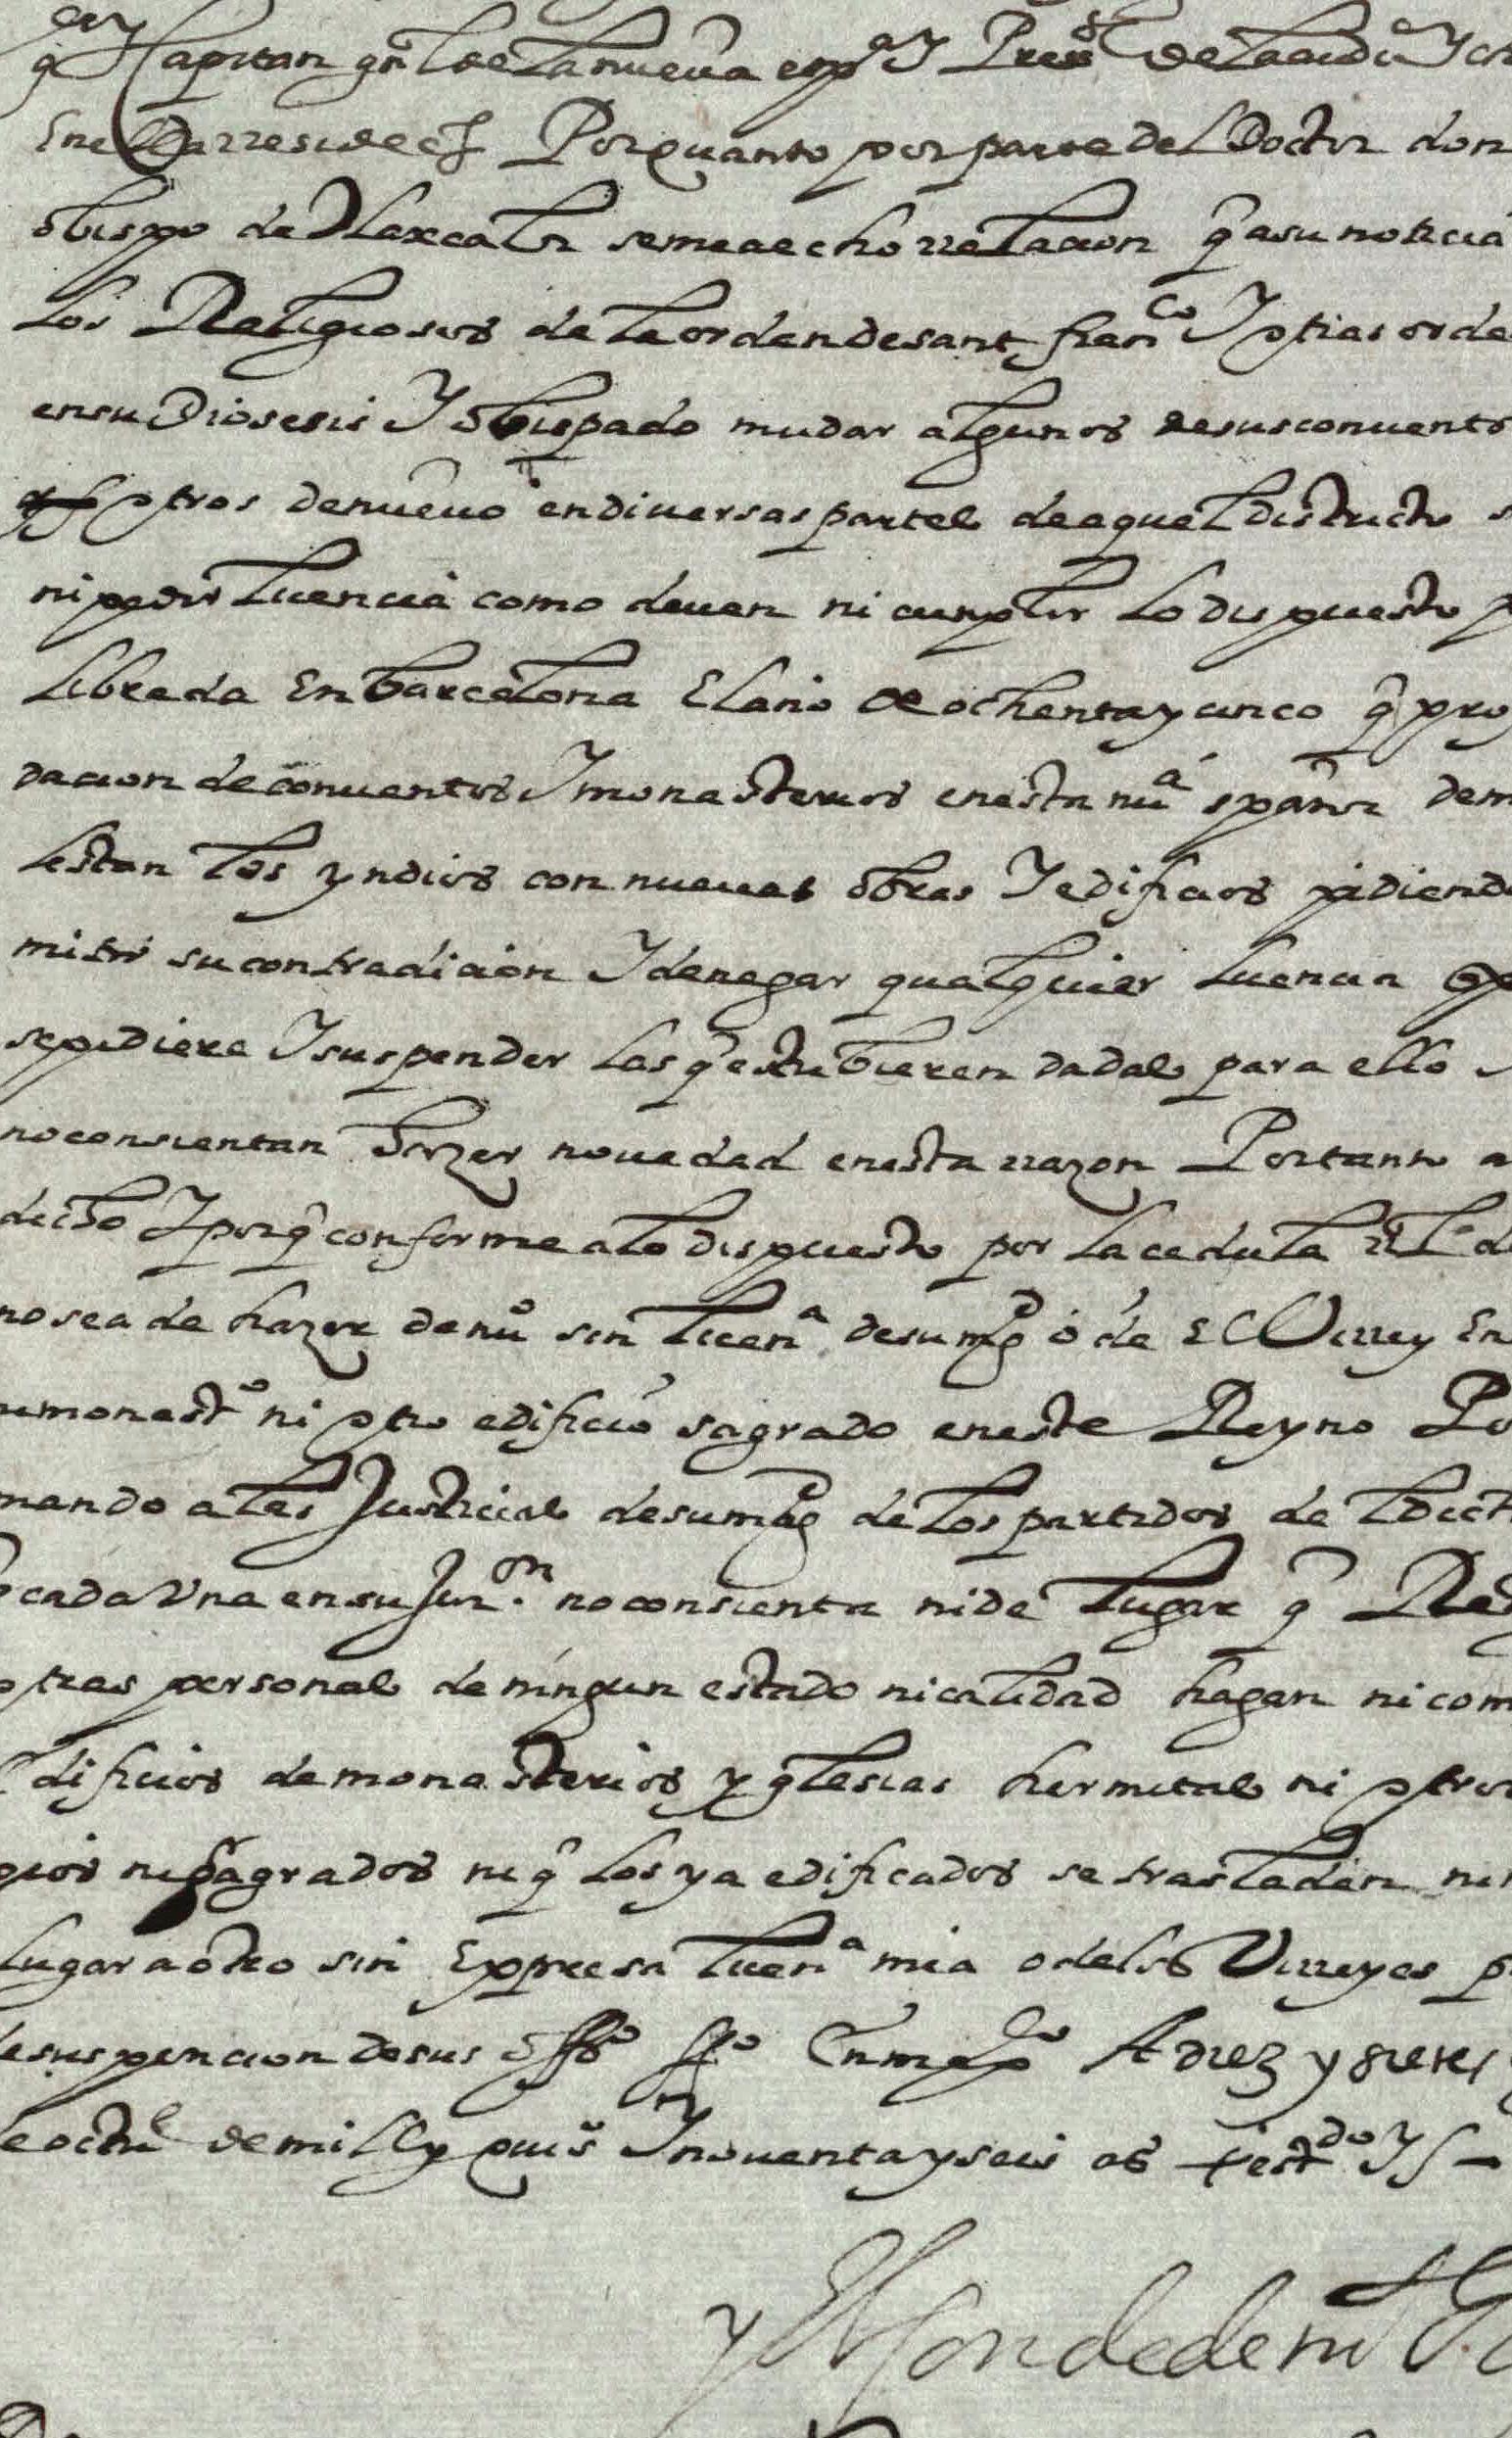 g Capitan gnl de la nueva espa Y Presi de la audia Y ch
En ella rreside etc Por quanto por parte del Doctor don
obispo de Tlaxcala se me a echo rrelacion q a su noticia
los Religiosos de la orden de sant franco Y otras orde
en su Diosesis Y obispado mudar algunos de sus conuento
otros de nueuo en diuersas partes de aquel districto s
ni pedir licencia como deuen ni cumplir lo dispuesto p
librada En barcelona El año de ochenta y cinco q pro
dacion de conuentos Y monasterios en esta nua españa dem
lestan los yndios con nueuas obras Y edificios pidiendo
mitir su contradicion Y denegar qualquier licencia
se pidiere Y suspender las q estubieren dadas para ello
no consientan hazer nouedad en esta rrazon Por tanto a
dicho Y porq conforme a lo dispuesto por la cedula rl de
no se a de hazer de nuo sin licena de su mgd o de El Virrey En
monesto ni otro edificio sagrado en este Reyno Po
mando a las Justicias de su magd de los partidos de l dich
cada Vna en su Juron no consienta ni de lugar q Relig
otras personas de ningun estado ni calidad hagan ni com
Edificios de monasterios yglesias hermitas ni otros
gios ni sagrados ni q los ya edificados se trasladen ni
lugar a otro sin Expresa licena mia o de los Virreyes p
de suspencion de sus offos fho En mexco A diez y siete
de octue de mill y quis Y nouenta y seis as testdo Y S
Y El Conde de m